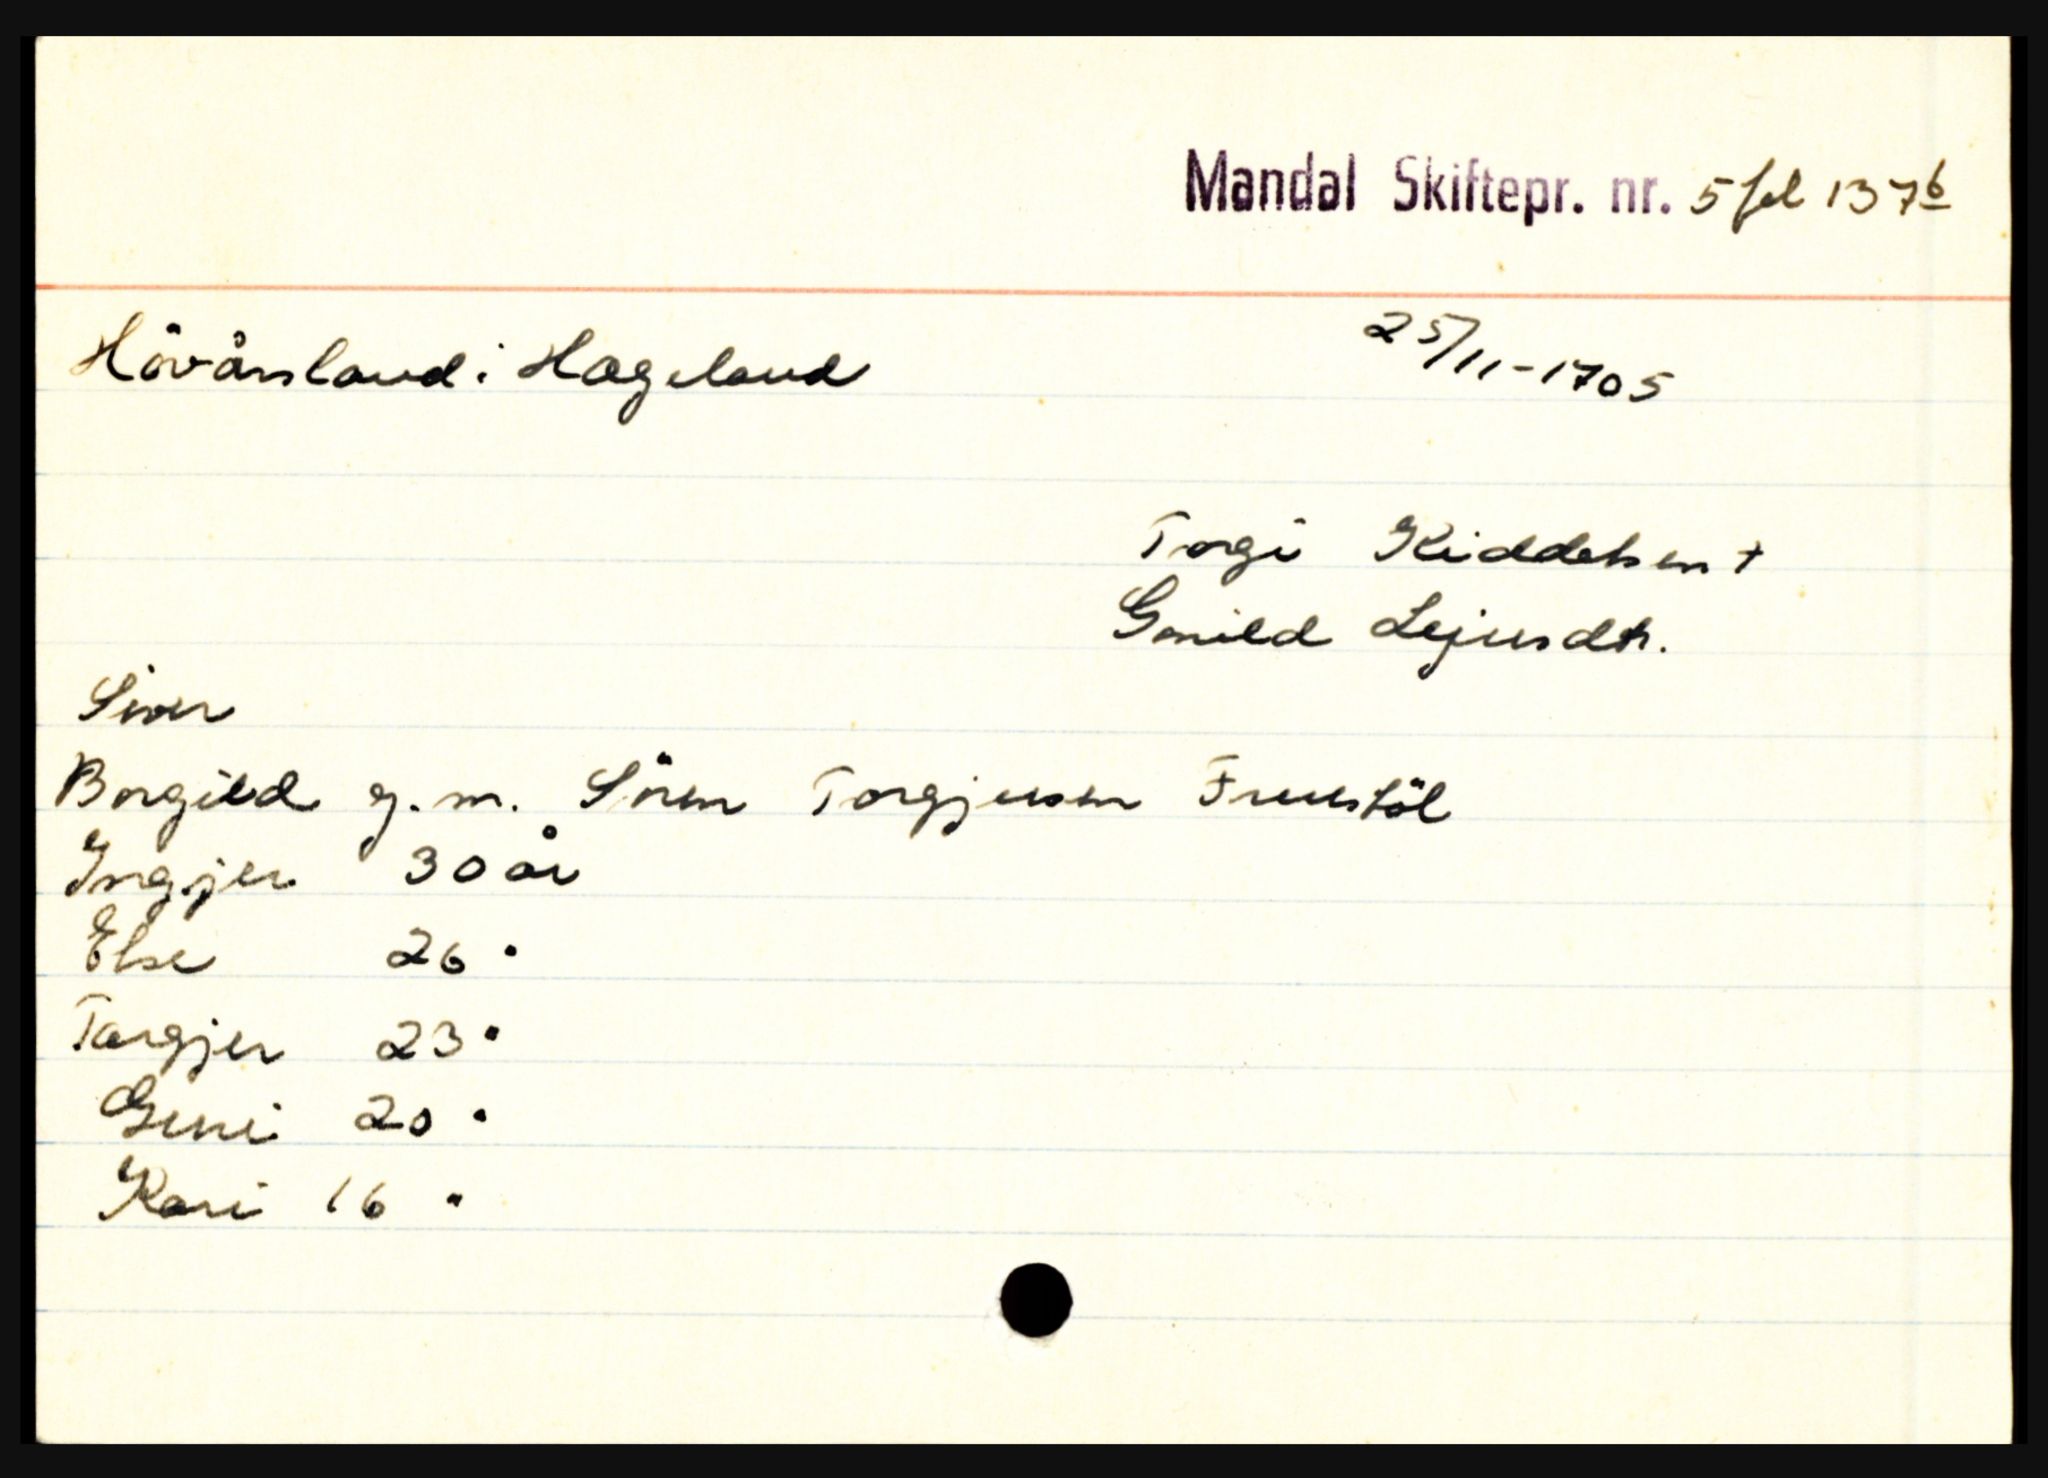 Mandal Skiftepr. nr. 5 fol 137b
Hövåsland i Hægeland 25/11-1705
Torgi Kiddelsen +
Gunild Lejusdtr.
Siver
Borgild g. m. Sören Torgjusen
Ingjer 30 år
Else 26 "
Targjer 23 "
Guni 20 "
Kari 16 "